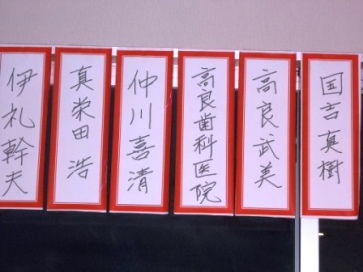 国吉真樹
高良武美
高良歯科医院
仲川喜清
真栄田浩
伊礼幹夫